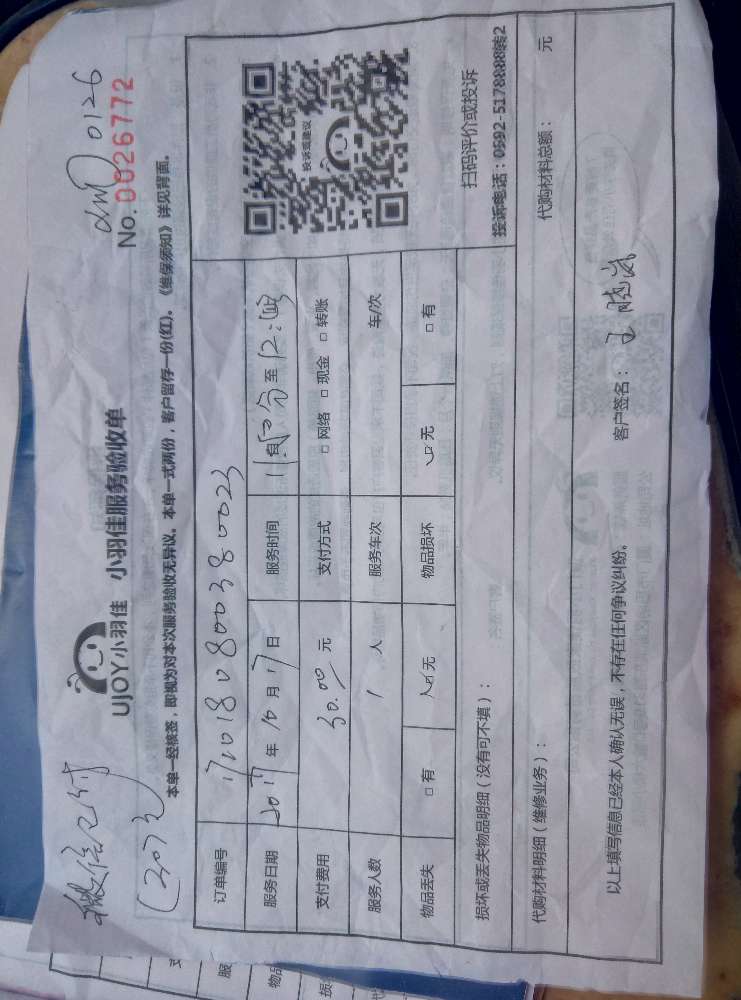 微信已付
(20元)
UJOY小羽佳 小羽佳服务验收单
0126
No.0026772
本单一经核签，即视为对本次服务验收无异议。本单一式两份，客户留存一份(红)。《维保须知》详见背面。
订单编号
服务日期 2017年10月17日 服务时间 至
支付费用 30.00 元 支付方式 □网络 □现金 □转账
服务人数 1 人 服务车次 车/次
物品丢失 □有 □无 物品损坏 □无 □有
投诉或建议
扫码评价或投诉
投诉电话：0592-5178888转2
损坏或丢失物品明细（没有可不填）：
代购材料明细（维修业务）： 代购材料总额： 元
以上填写信息已经本人确认无误，不存在任何争议纠纷。 客户签名：